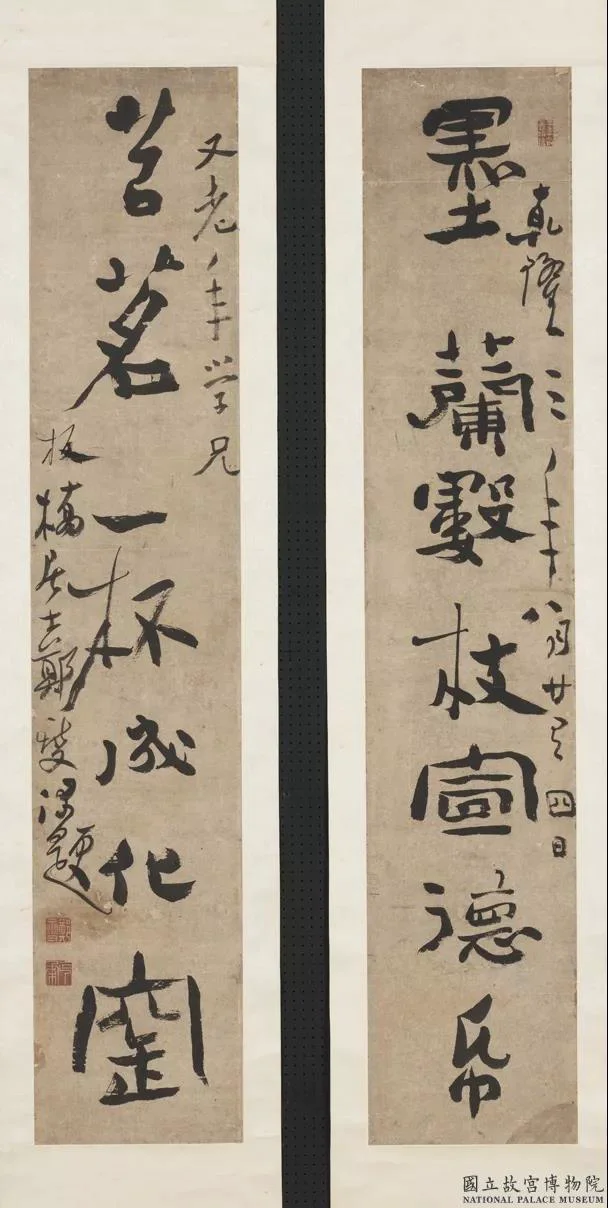 墨蘭數枝宣德帋
乾隆年八月廿四日
苦茗一杯成化窯
又老年學兄
板橋居士鄭燮漫題
國立故宮博物院
NATIONAL PALACE MUSEUM